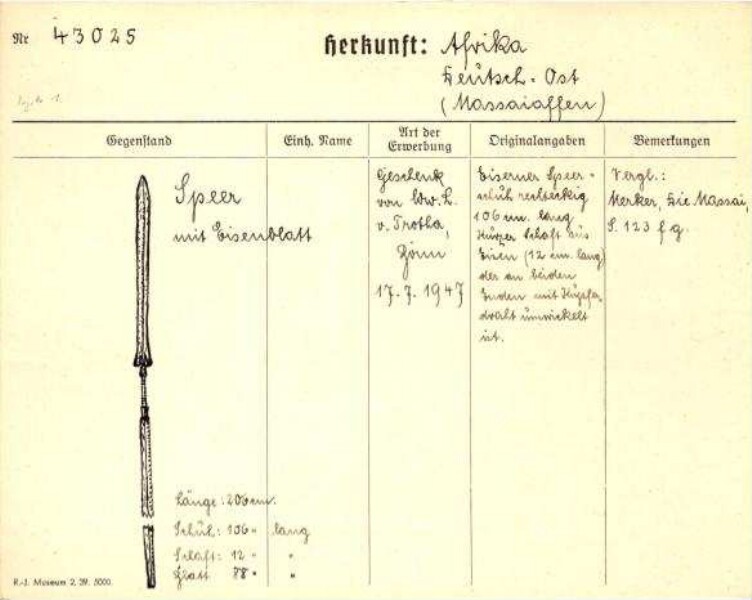 Nr 43025
Herkunft: Afrika
Deutsch-Ost
(Massaiaffen)
Gegenstand
Einh. Name
Art der Erwerbung
Originalangaben
Bemerkungen
Speer
mit Eisenblatt
Geschenk
von Ldw. L.
v. Trotha,
Bonn
17.7.1947
Eiserner Speer-
schuh rechteckig
106 cm. lang
Kurzer Schaft aus
Eisen (12 cm. lang)
der an beiden
Enden mit Kupfer-
draht umwickelt
ist.
Vergl.:
Merker, Die Massai,
S. 123 f.g.
Länge: 206 cm.
Schuh: 106 " lang
Schaft: 12 " "
Blatt 88 " "
R.-J. Museum 2. 39. 5000.